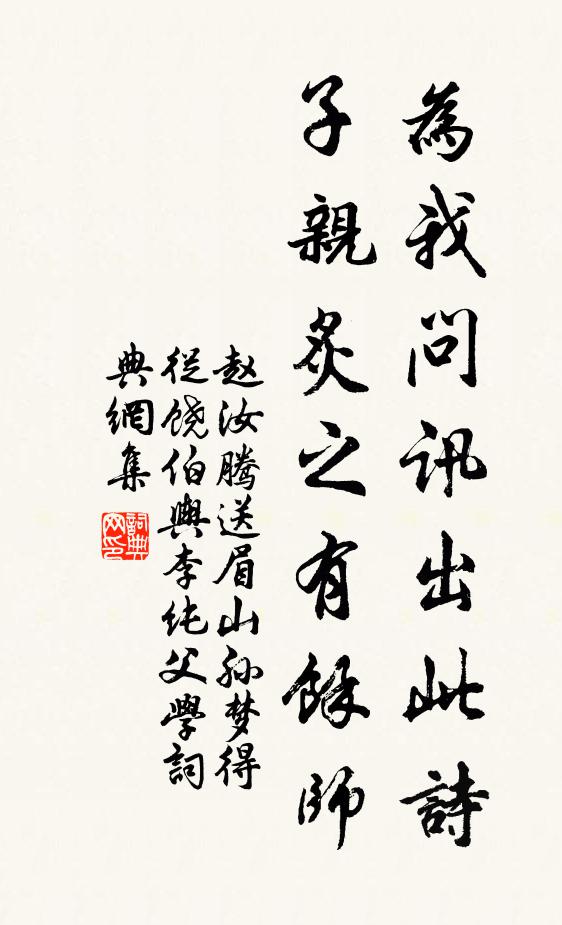 為我問訊出此詩
子親炙之有餘師
赵汝騰送眉山孙梦得
從饶伯輿李纯父學詞
典網集
詞典
网印